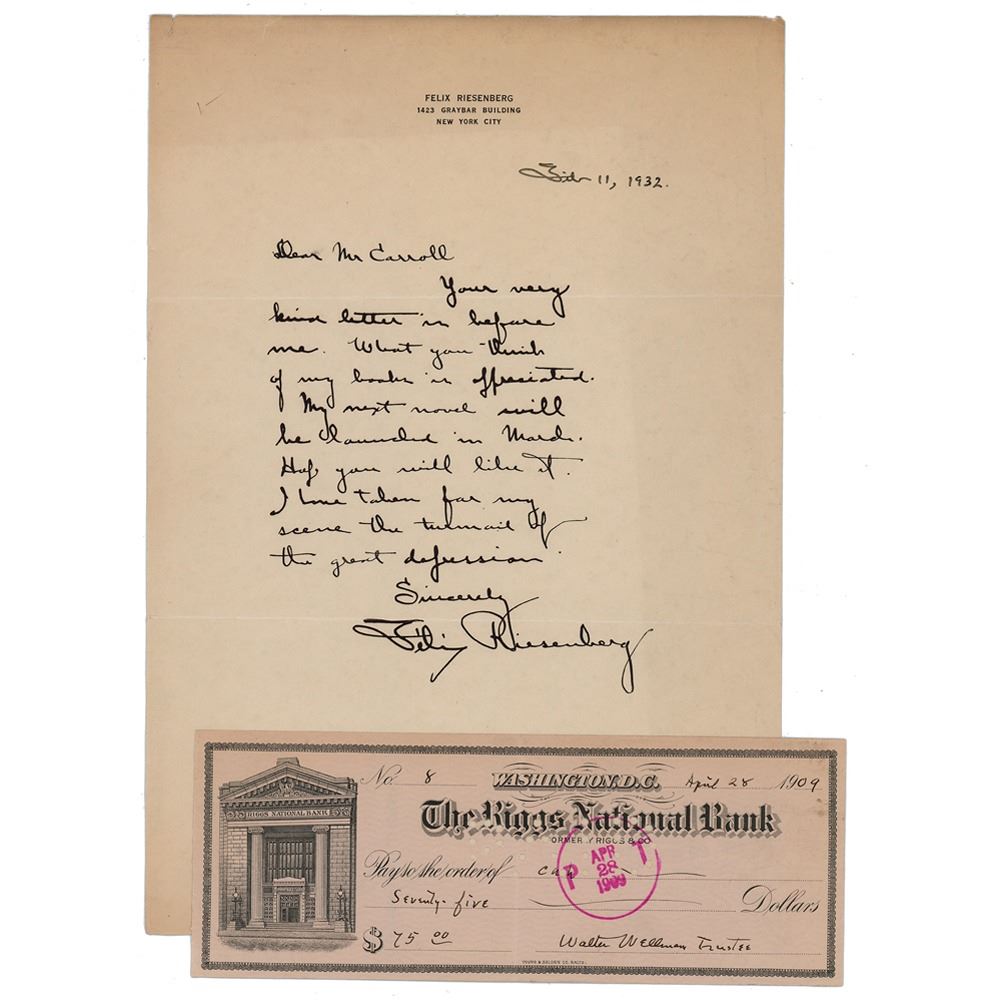 FELIX RIESENBERG
1423 GRAYBAR BUILDING
NEW YORK CITY
Feb 11, 1932.
Dear Mr Carroll
Your very
kind letter is before
me. What you think
of my books is appreciated.
My next novel will
be launched in March.
Hope you will like it.
I have taken for my
scene the turmoil of
the great depression.
Sincerely
Felix Riesenberg
No. 8 WASHINGTON, D.C. April 28 1909
The Riggs National Bank
FORMERLY RIGGS & CO
RIGGS NATIONAL BANK
Pay to the order of cash
Seventy-five Dollars
$ 75 00 Walter Wellman Trustee
APR
28
1909